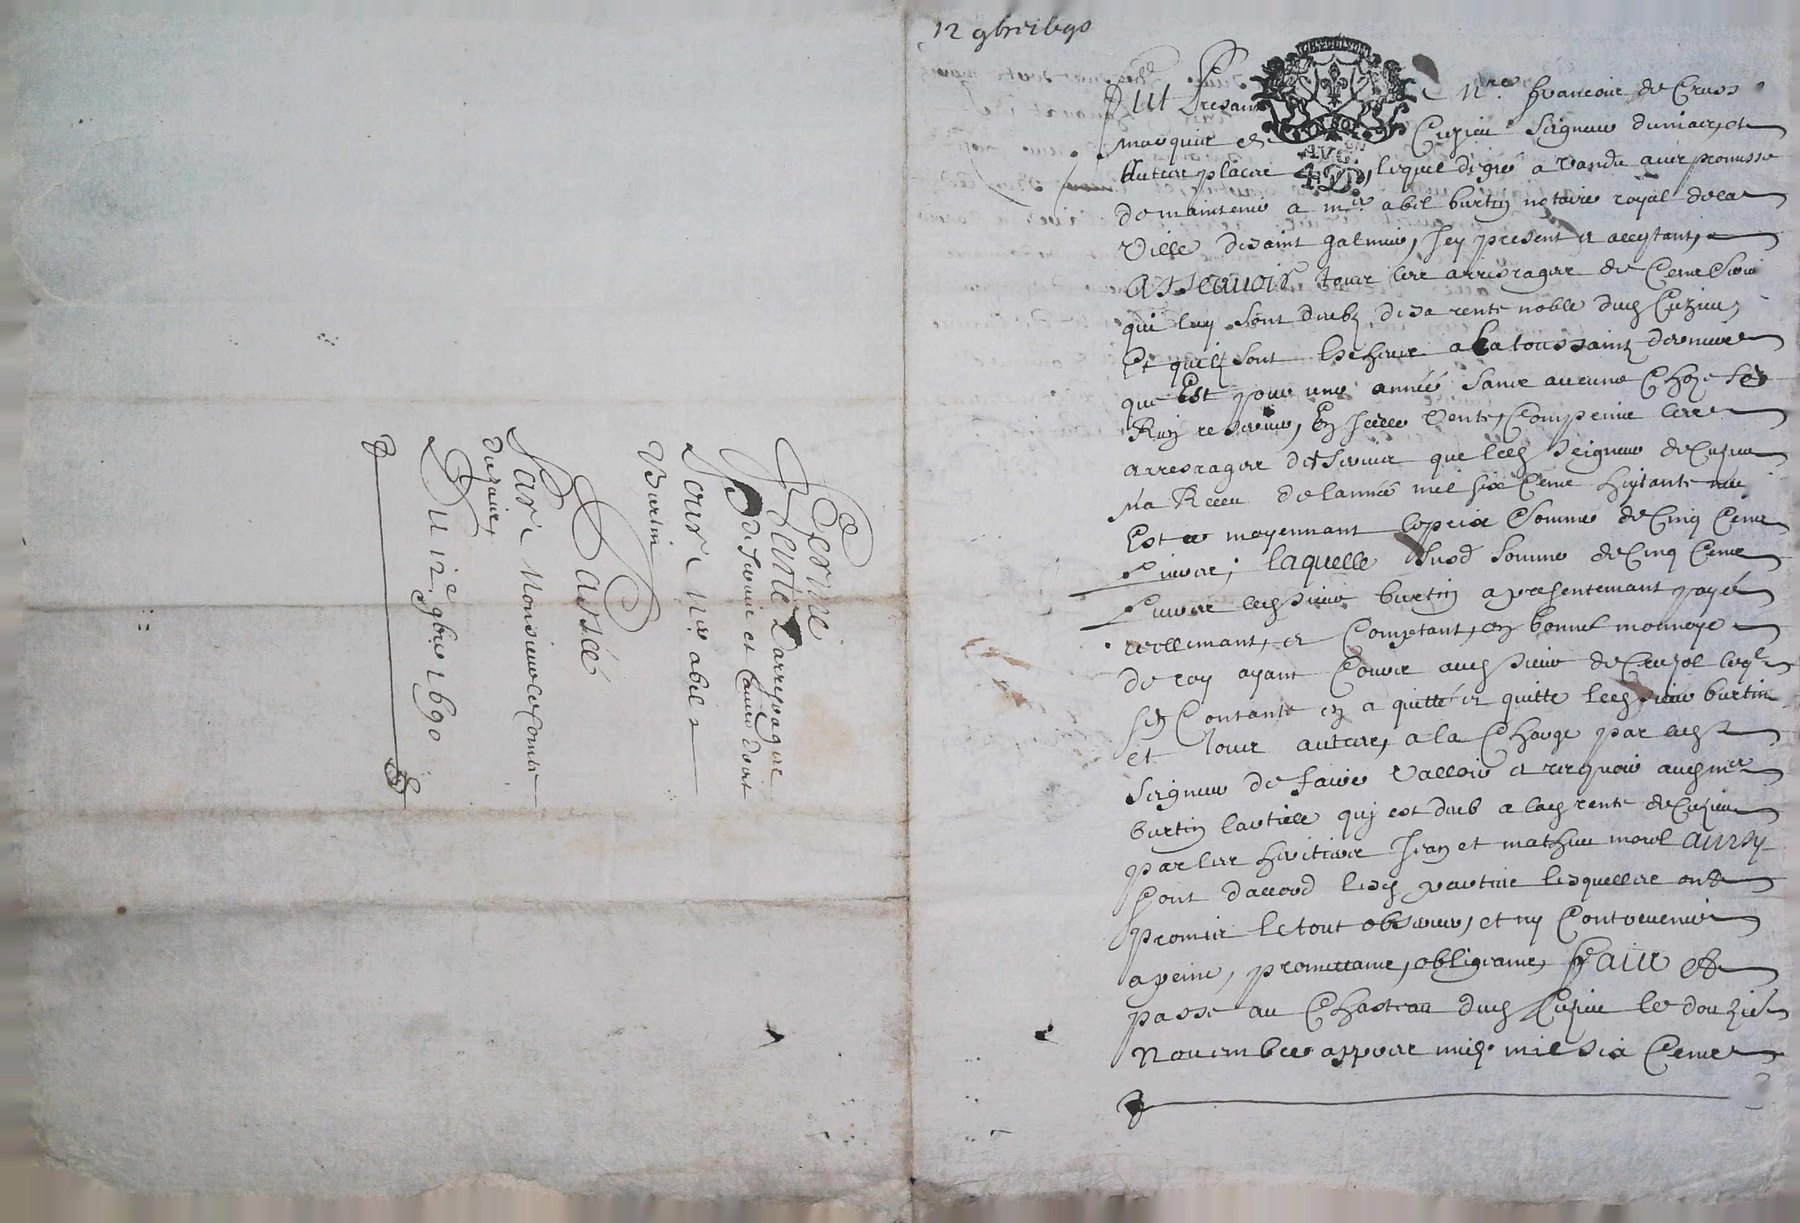 12 9bre 1690
Fut Presant Mre francois de Cruss
marquis de Cuzieu Seigneur dumiray, et
Autres places, lequel de gré a Vandu avec promesse
de maintenir a mre abel burtin notaire royal de la
Ville de saint galmier, Icy present et acceptant,
ASSCAUOIR tous les arrerages de Cens Servis
qui luy sont dubz de sa rente noble dud Cuzieu,
Et quilz sont Escheus a La toussaintz derniere
que Est pour une année sans aucune Choze sen
Rien reserver, En icelle Vente, Comprins les
arreragers de Servis que led Seigneur de Cuzieu
Na Receu de lannée mil six Cens huitante neuf
Est ce moyennant le prix Somme de Cinq Cens
Livres; laquelle susd Somme de Cinq Cens
Livres led Sieur burtin a presentemant payé
reellemant, et Comptant, en bonne monnoye
de roy ayant Cours aud Sieur de Crusol leql
sen Contante en a quitté et quitte led sieur burtin
et tous autres, a la Charge par led
Seigneur de faire Valloir et au mre
burtin lartícle quj est dub a lad rente de Cuzieu
par les heritiers Jean et mathieu morel AINSY
sont daccord lesd parties lesquelles ont
promis le tout observer, et ny Contrevenir
a peine, promettans, obligeans, FAICT Et
passé au Chasteau dud Cuzieu le douzie
Novembre appres midy mil six Cens
Ferme
Vente Darrerages
De Servis et
Pour Mre abel
Burtin
Passée
Par Monsieur le Comte
Duzaiet
Du 12e 9bre 1690